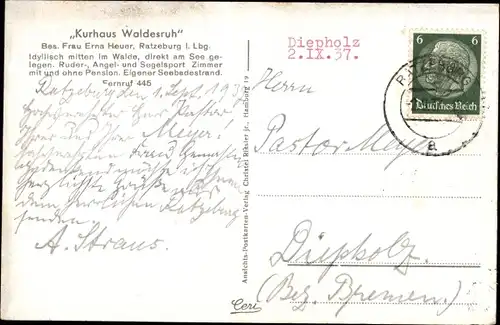 „Kurhaus Waldesruh"
Bes. Frau Erna Heuer, Ratzeburg i. Lbg.
Idyllisch mitten im Walde, direkt am See ge-
legen. Ruder-, Angel- und Segelsport Zimmer
mit und ohne Pension. Eigener Seebadestrand.
Fernruf 445
Ratzeburg den 1. Sept. 1937
Herr Pastor
Meyer
Ihrer Frau Gemahlin
herzliche Grüße aus
dem herrlichen Ratzeburg
senden.
A. Straus.
Ansichts-Postkarten-Verlag Christel Ribsier jr., Hamburg 19
Ceri
Diepholz
2.IX.37.
6 6
Deutsches Reich
RATZEBURG
a
Herrn
Pastor Meyer
Diepholz.
(Bez. Bremen.)